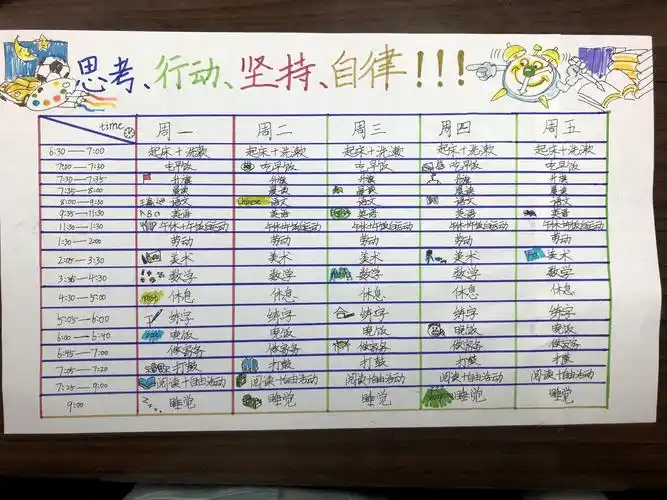 思考、行动、坚持、自律!!!
time 周一 周二 周三 周四 周五
6:30—7:00 起床+洗漱 起床+洗漱 起床+洗漱 起床+洗漱 起床+洗漱
7:00—7:30 吃早饭 吃早饭 吃早饭 吃早饭 吃早饭
7:30—7:35 升旗 升旗 升旗 升旗 升旗
7:35—8:00 晨读 晨读 晨读 晨读 晨读
8:00—9:30 语文 Chinese 语文 语文 语文 语文
9:35—11:30 ABC 英语 英语 英语 英语 英语
11:30—1:30 午休+午饭+自由活动 午休+午饭+自由活动 午休+午饭+自由活动 午休+午饭+自由活动 午休+午饭+自由活动
1:30—2:00 劳动 劳动 劳动 劳动 劳动
2:05—3:30 美术 美术 美术 美术 Art 美术
3:35—4:30 数学 数学 数学 数学 数学
4:30—5:00 rest 休息 休息 休息 休息 休息
5:05—6:00 练字 练字 练字 练字 练字
6:00—6:40 晚饭 晚饭 晚饭 晚饭 晚饭
6:45—7:00 做家务 做家务 做家务 做家务 做家务
7:05—7:20 打鼓 打鼓 打鼓 打鼓 打鼓
7:25—9:00 阅读+自由活动 阅读+自由活动 阅读+自由活动 阅读+自由活动 阅读+自由活动
9:00 zzz 睡觉 睡觉 睡觉 睡觉 睡觉